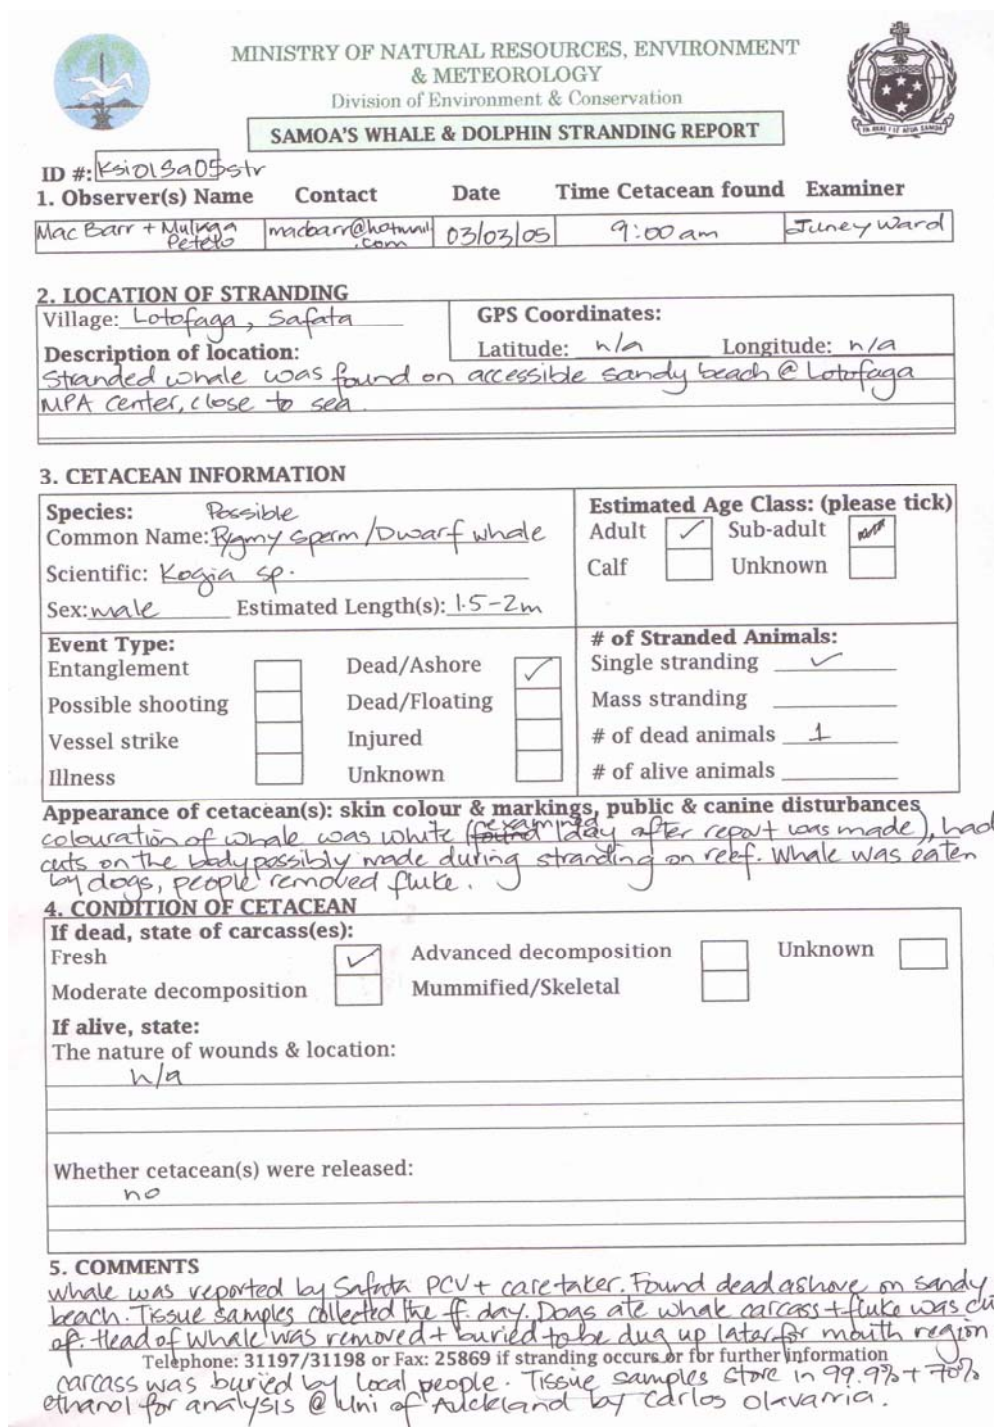 MINISTRY OF NATURAL RESOURCES, ENVIRONMENT
& METEOROLOGY
Division of Environment & Conservation
SAMOA'S WHALE & DOLPHIN STRANDING REPORT
ID #: Ksi01Sa05str
1. Observer(s) Name Contact Date Time Cetacean found Examiner
Mac Barr + Mulivga Petelo macbarr@hotmail.com 03/03/05 9:00am Juney Ward
2. LOCATION OF STRANDING
Village: Lotofaga, Safata
GPS Coordinates:
Latitude: n/a Longitude: n/a
Description of location:
Stranded whale was found on accessible sandy beach @ Lotofaga
MPA center, close to sea.
3. CETACEAN INFORMATION
Species: Possible
Common Name: Pygmy sperm/Dwarf whale
Scientific: Kogia sp.
Sex: male Estimated Length(s): 1.5-2m
Estimated Age Class: (please tick)
Adult ✓ Sub-adult
Calf Unknown
Event Type:
Entanglement Dead/Ashore ✓
Possible shooting Dead/Floating
Vessel strike Injured
Illness Unknown
# of Stranded Animals:
Single stranding ✓
Mass stranding
# of dead animals 1
# of alive animals
Appearance of cetacean(s): skin colour & markings, public & canine disturbances
colouration of whale was white (found examined 1 day after report was made), had
cuts on the body possibly made during stranding on reef. Whale was eaten
by dogs, people removed fluke.
4. CONDITION OF CETACEAN
If dead, state of carcass(es):
Fresh ✓ Advanced decomposition Unknown
Moderate decomposition Mummified/Skeletal
If alive, state:
The nature of wounds & location:
n/a
Whether cetacean(s) were released:
no
5. COMMENTS
whale was reported by Safata PCV + caretaker. Found dead ashore on sandy
beach. Tissue samples collected the ff. day. Dogs ate whale carcass + fluke was cu
of. Head of whale was removed + buried to be dug up later for mouth region
Telephone: 31197/31198 or Fax: 25869 if stranding occurs or for further information
carcass was buried by local people. Tissue samples store in 99.9% + 70%
ethanol for analysis @ Uni of Auckland by Carlos Olavarria.